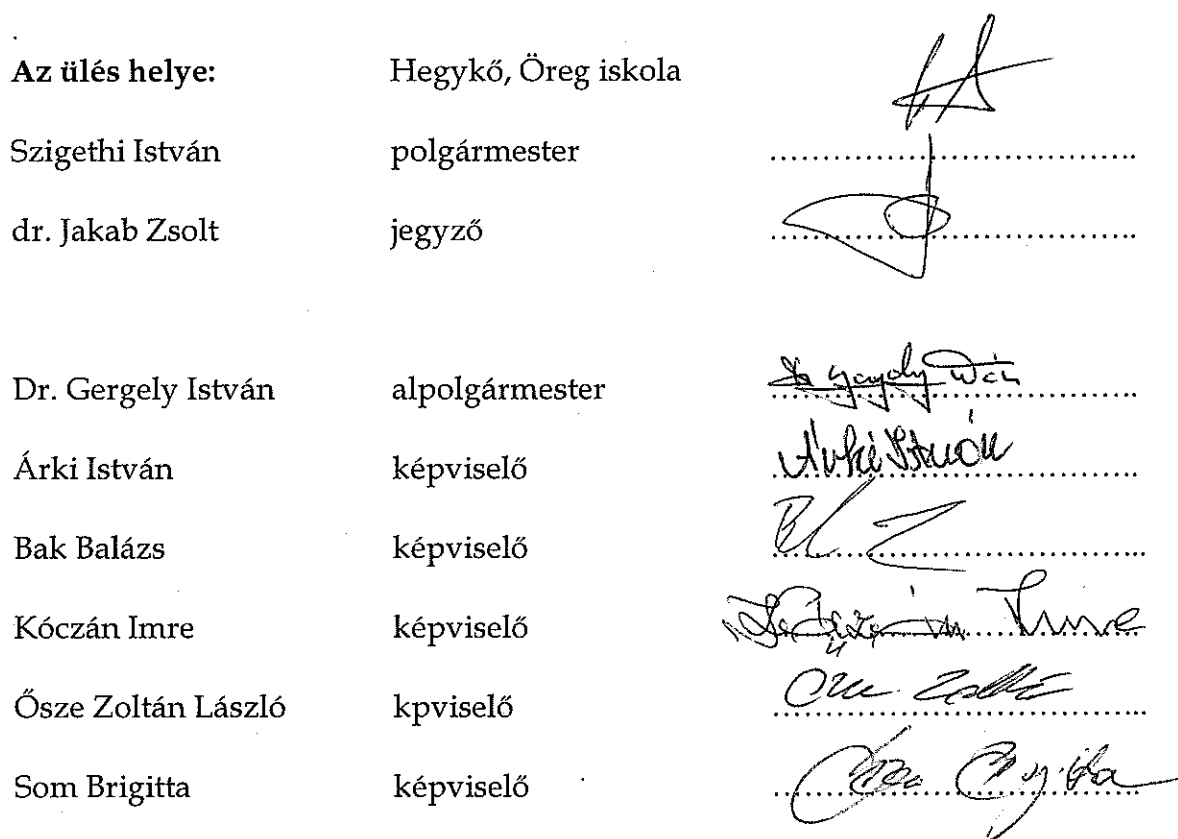 Az ülés helye: Hegykő, Öreg iskola
Szigethi István polgármester
dr. Jakab Zsolt jegyző
Dr. Gergely István alpolgármester
Árki István képviselő Árki István
Bak Balázs képviselő
Kóczán Imre képviselő Kóczán Imre
Ősze Zoltán László kpviselő
Som Brigitta képviselő